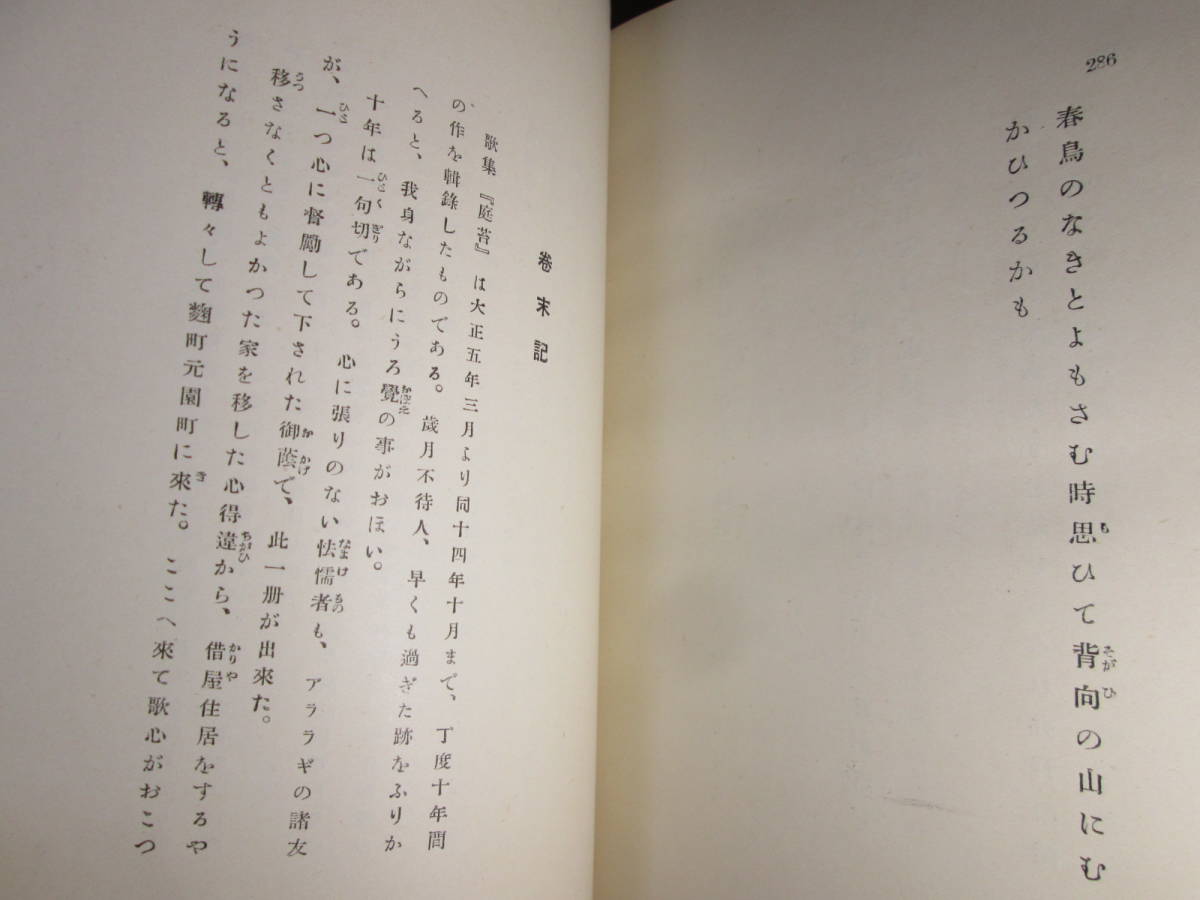 286
春鳥のなきとよもさむ時思ひて背向の山にむ
かひつるかも
卷末記
歌集『庭苔』は大正五年三月より同十四年十月まで、丁度十年間
の作を輯錄したものである。歲月不待人、早くも過ぎた跡をふりか
へると、我身ながらにうろ覺の事がおほい。
十年は一句切である。心に張りのない怯懦者も、アララギの諸友
が、一つ心に督勵して下された御蔭で、此一册が出來た。
移さなくともよかつた家を移した心得違から、借屋住居をするや
うになると、轉々して麴町元園町に來た。ここへ來て歌心がおこつ